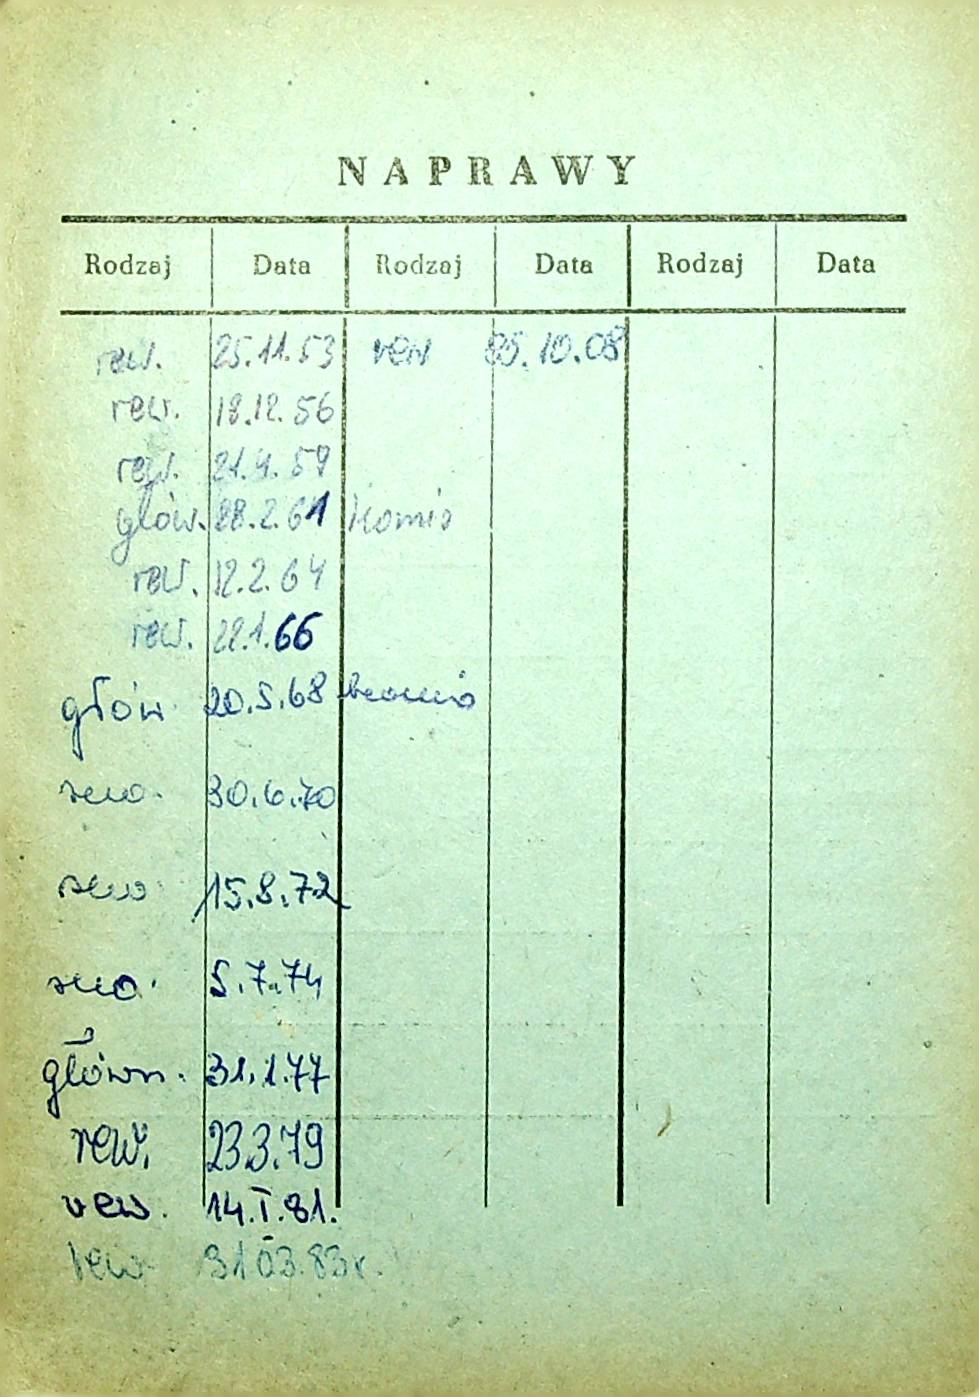 NAPRAWY
Rodzaj Data Rodzaj Data Rodzaj Data
rew. 25.11.53 rew 85.10.08
rew. 18.12.56
rew. 21.4.59
głów. 28.2.61
rew. 12.2.64
rew. 22.1.66
głów 20.5.68
rew. 30.6.70
rew 15.8.72
rew. 5.7.74
główn. 31.1.77
rew. 23.3.79
rew. 14.I.81.
rew 31.03.83r.